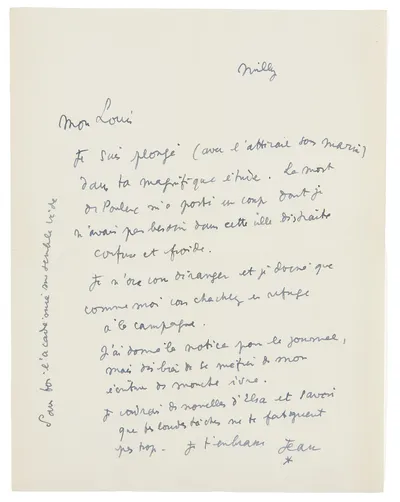 Milly
Mon Louis
Je suis plongé (avec l'attirail des marins)
dans ta magnifique étude. La mort
de Poulenc m'a porté un coup dont je
n'avais pas besoin dans cette ville distraite
confuse et froide.
Je n'ose vous déranger et je devine que
comme moi vous cherchez un refuge
à la campagne.
J'ai donné la notice pour le journal,
mais dis-leur de se méfier de mon
écriture de mouche ivre.
Je voudrais des nouvelles d'Elsa et savoir
que tes lourdes tâches ne te fatiguent
pas trop. Je t'embrasse Jean
*
Sans toi l'académie me semble vide